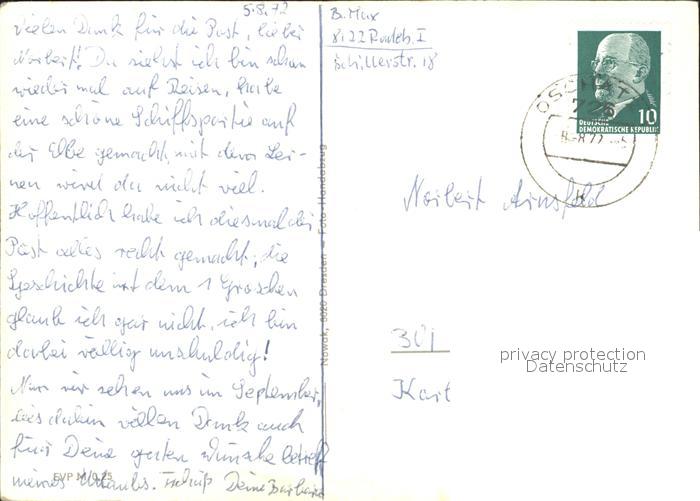 5.8.72
Vielen Dank für die Post, lieber
Norbert! Du siehst ich bin schon
wieder mal auf Reisen, habe
eine schöne Schiffspartie auf
der Elbe gemacht, mit dem
nen wird da nicht viel.
Hoffentlich habe ich diesmal der
Post alles recht gemacht, die
Geschichte mit dem 1 Groschen
glaub ich gar nicht, ich bin
dabei völlig unschuldig!
Nun wir sehen uns im September,
bis dahin vielen Dank auch
für Deine guten Wünsche betreff
meines Urlaubs. Tschüß Deine Barbara
EVP M 0,25
Nowak, 8020 Dresden — Foto Handelzug
B. Max
8122 Radeb. I
Schillerstr. 18
OSCHATZ
726
10
DEUTSCHE
DEMOKRATISCHE REPUBLIK
Norbert Arnsfeld
301
privacy protection
Datenschutz